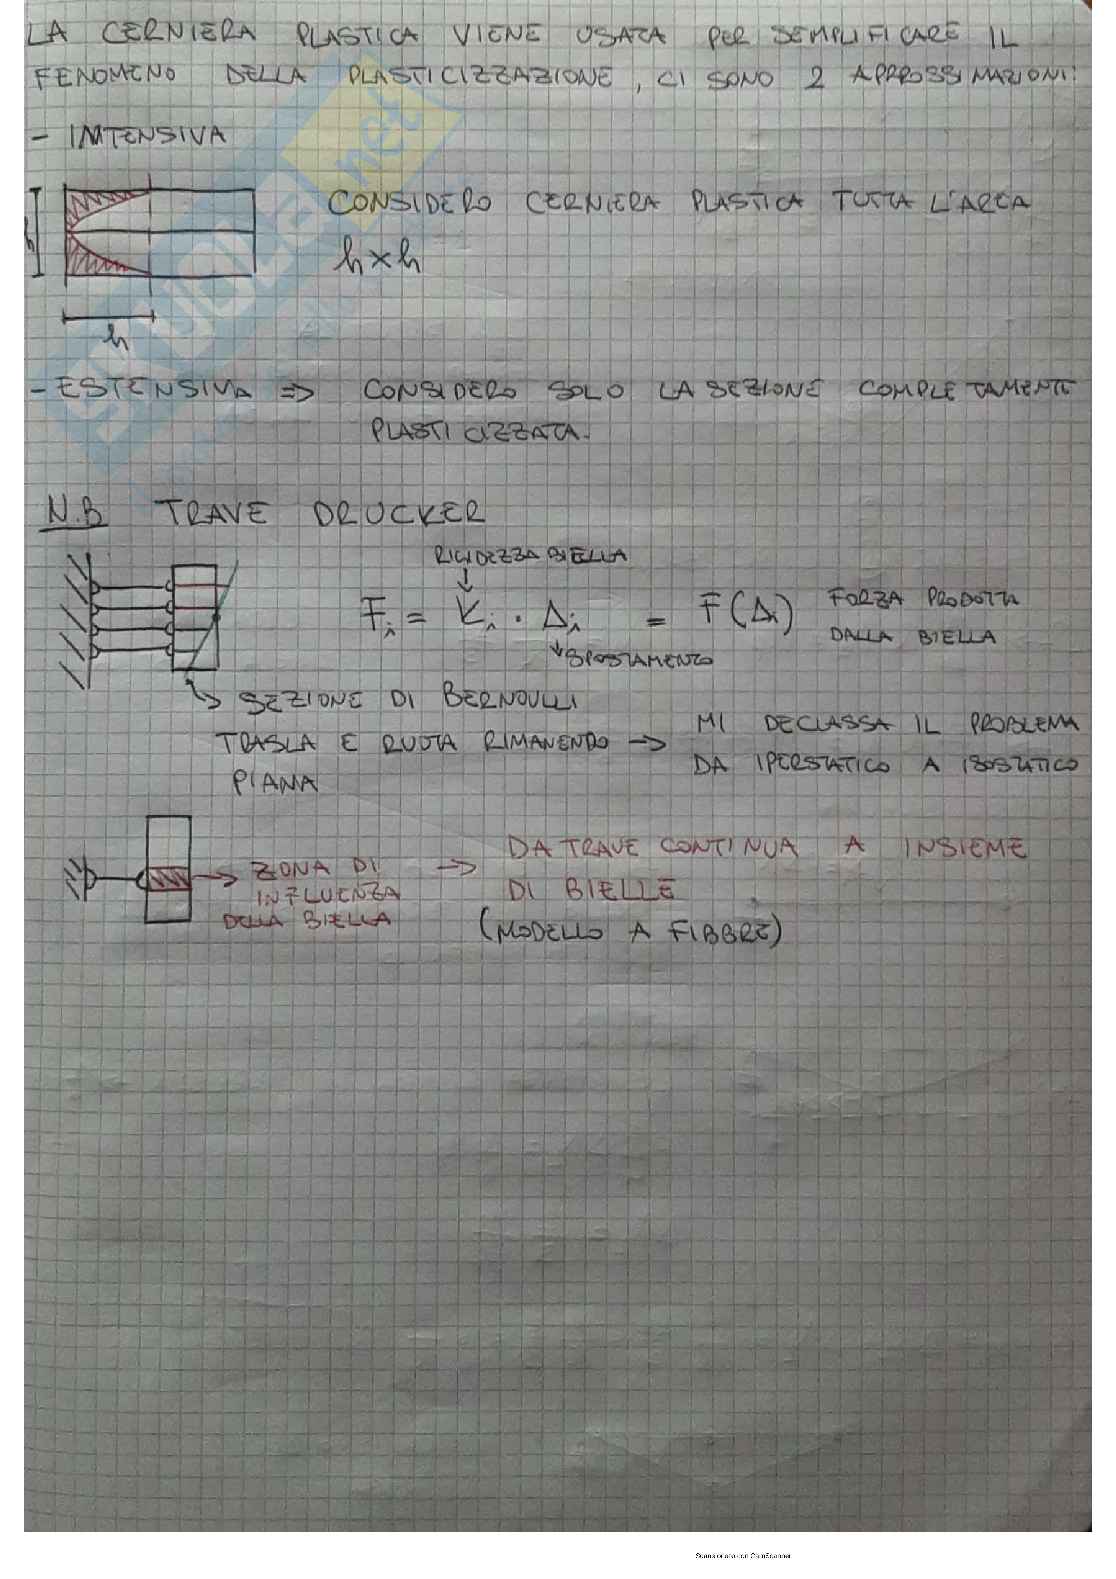 LA CERNIERA PLASTICA VIENE USATA PER SEMPLIFICARE IL
FENOMENO DELLA PLASTICIZZAZIONE, CI SONO 2 APPROSSIMAZIONI:
- INTENSIVA
CONSIDERO CERNIERA PLASTICA TUTTA L'AREA
h x h
h
h
- ESTENSIVA => CONSIDERO SOLO LA SEZIONE COMPLETAMENTE
PLASTICIZZATA.
N.B TRAVE DRUCKER
RIGIDEZZA BIELLA
Fi = Ki · Δi = F(Δi) FORZA PRODOTTA
DALLA BIELLA
SPOSTAMENTO
SEZIONE DI BERNOULLI
TRASLA E RUOTA RIMANENDO → MI DECLASSA IL PROBLEMA
PIANA DA IPERSTATICO A ISOSTATICO
→ ZONA DI
INFLUENZA
DELLA BIELLA
→ DA TRAVE CONTINUA A INSIEME
DI BIELLE
(MODELLO A FIBBRE)
Scansionato con CamScanner
SKUOLA.net